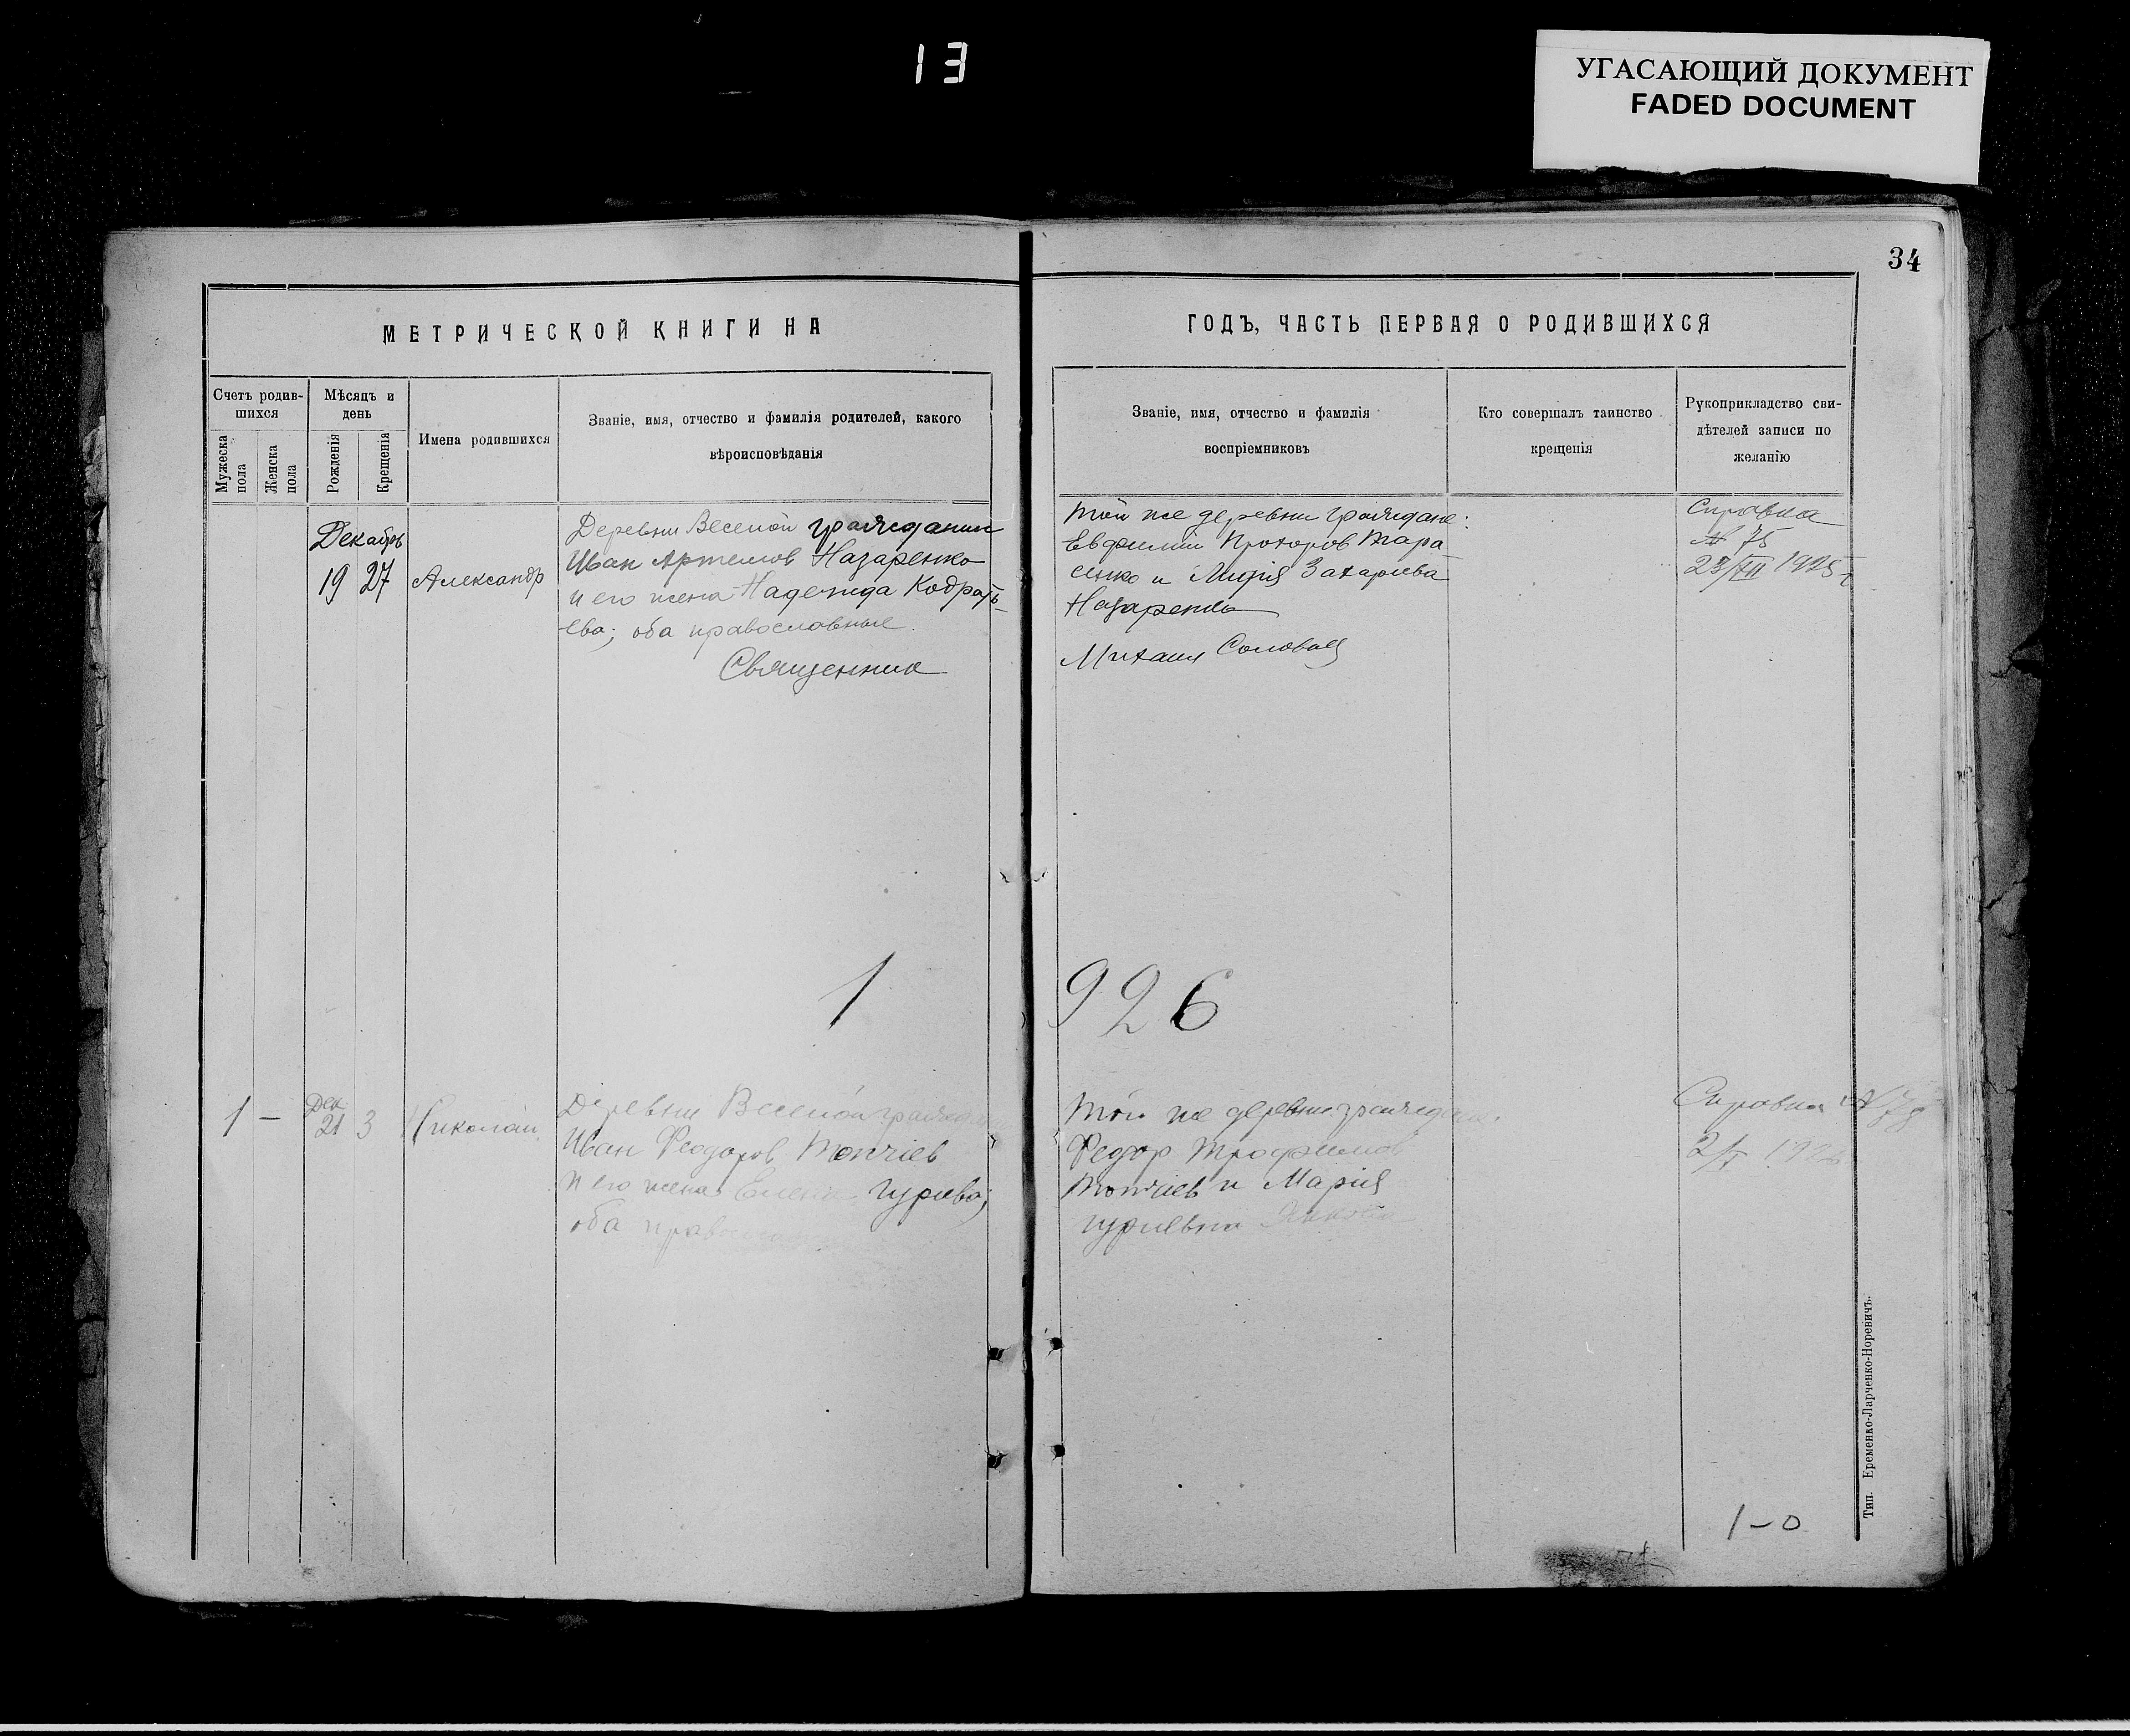 13
УГАСАЮЩИЙ ДОКУМЕНТ
FADED DOCUMENT
34
МЕТРИЧЕСКОЙ КНИГИ НА
ГОДЪ, ЧАСТЬ ПЕРВАЯ О РОДИВШИХСЯ
Счетъ родив-
шихся
Мужеска
пола
Женска
пола
Мѣсяцъ и
день
Рожденія
Крещенія
Имена родившихся
Званіе, имя, отчество и фамилія родителей, какого
вѣроисповѣданія
Званіе, имя, отчество и фамилія
воспріемниковъ
Кто совершалъ таинство
крещенія
Рукоприкладство сви-
дѣтелей записи по
желанію
Декабрь
19 27
Александр
Деревни Веселой гражданин
Иван Артемов Назаренко
и его жена Надежда Кодрать-
ева; оба православные.
Священник
Той же деревни граждане:
Евфимій Прохоров Тара-
сенко и Лидія Захариева
Назаренко
Михаил
Справка
№ 75
23/XII 1925 г
1 926
1 —
Дек
21 3
Николай
Деревни Веселой
Иван Феодоров Топчіев
и его жена Елена Гуриева;
оба
Той же деревни
Федор Трофимов
Топчіев и Марія
Гуриевна
Справка №
2/I
1-0
Тип. Еременко-Ларченко-Норевичъ.